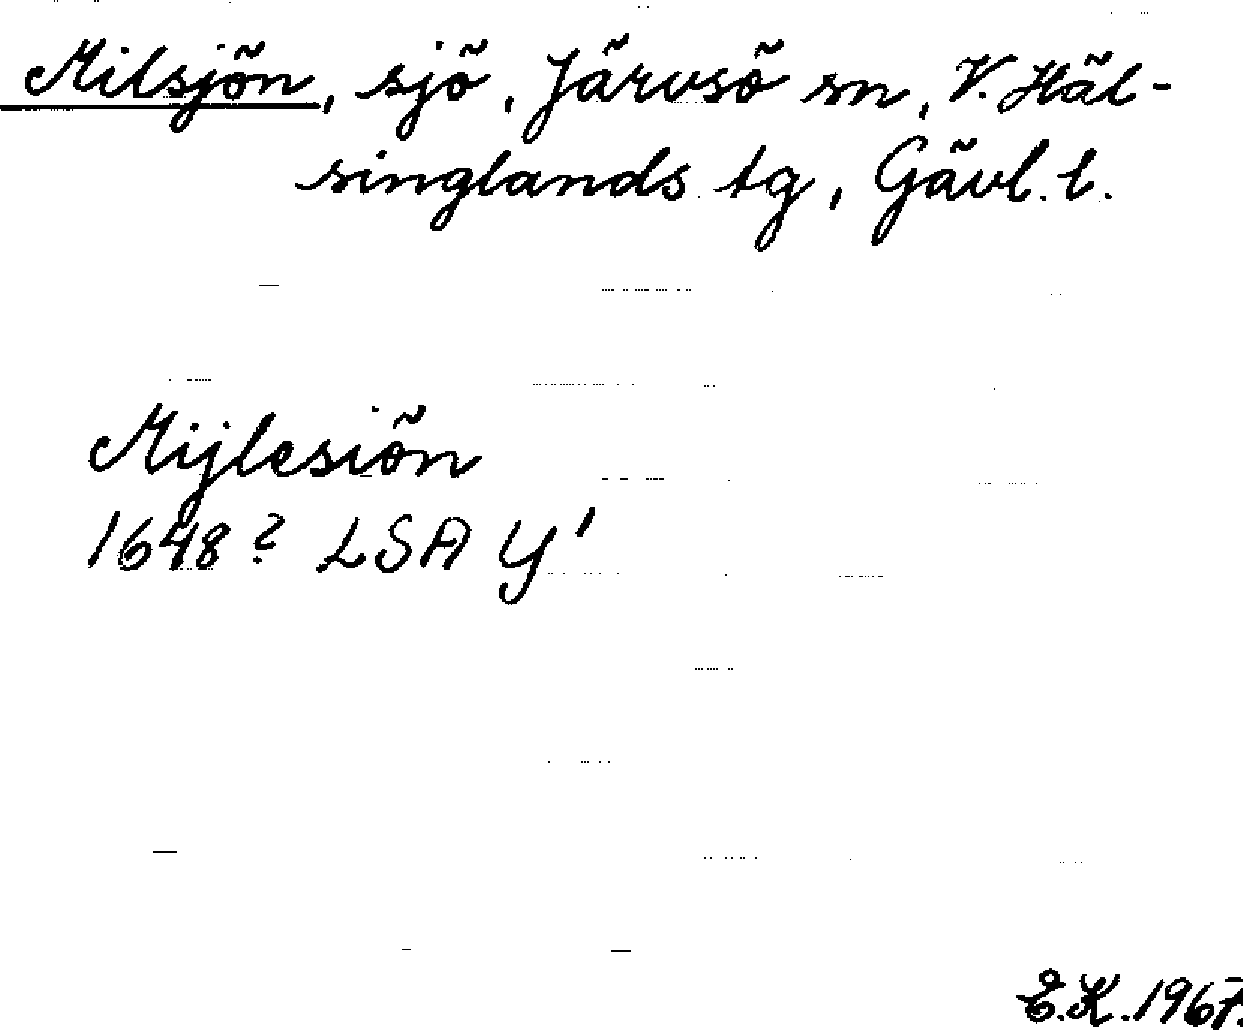 Milsjön, sjö, Järvsö sn, V. Häl-
singlands tg, Gävl. l.
Mijlesiön
1648? LSA Y'
E.K. 1967.